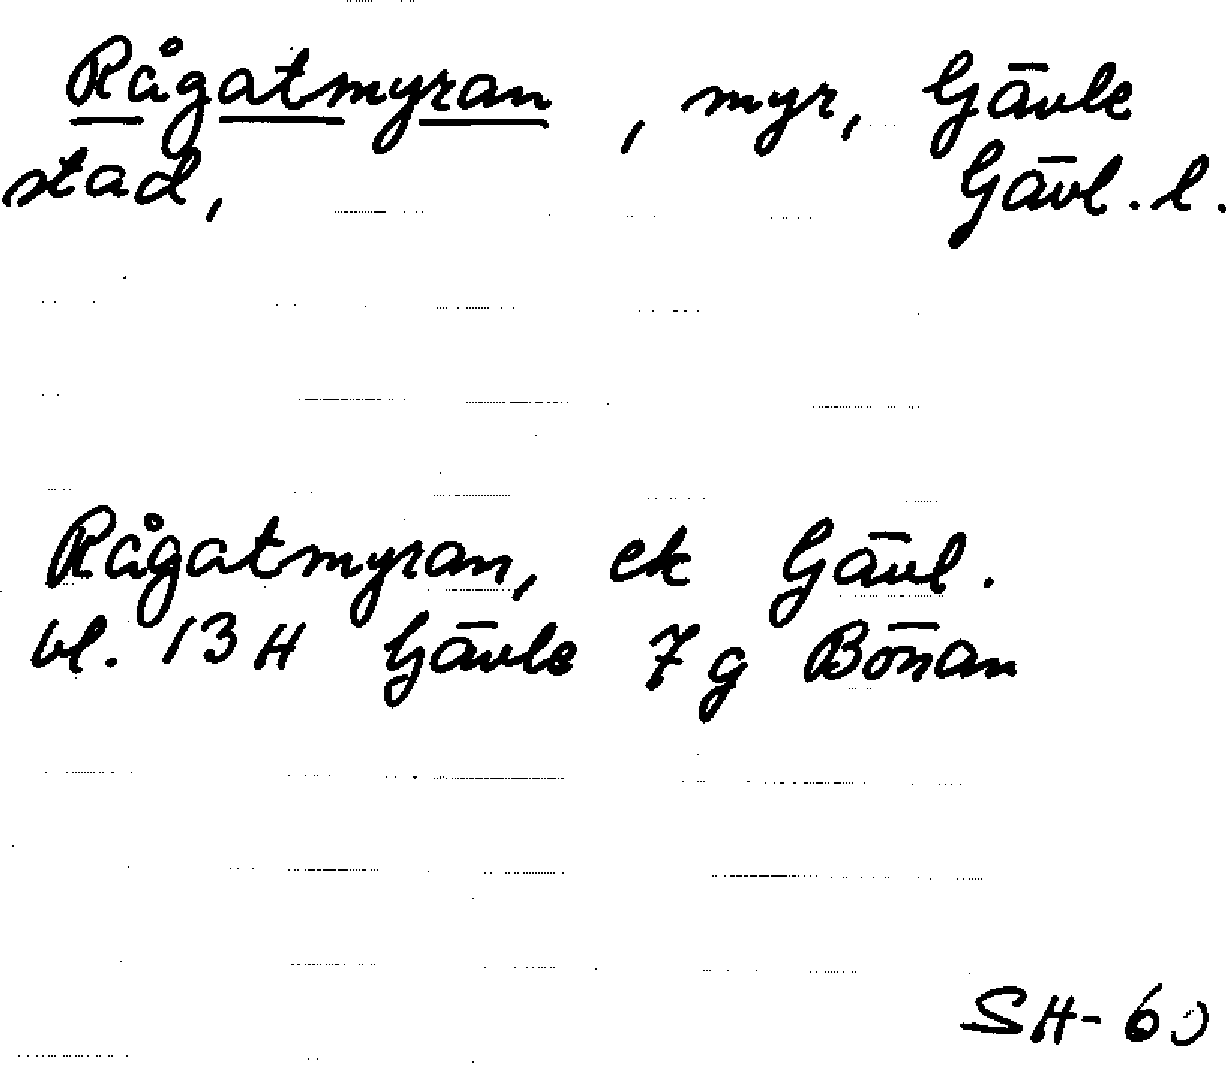 Rågatmyran, myr, Gävle
stad, Gävl. l.
Rågatmyran, ek Gävl.
bl. 13 H Gävle 7 g Bönan
SH-60